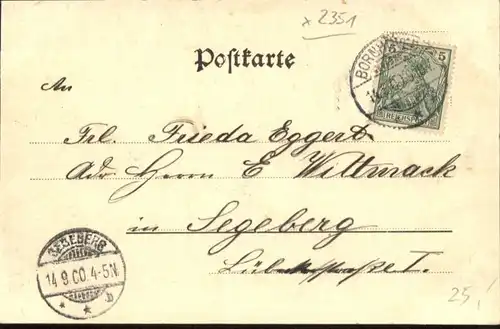 x 2351
Postkarte
An
BORNH
5
REICHSPOST
Frl. Frieda Eggert
Adr Herrn E Wittmack
in Segeberg
Lübeckerstraße I.
SEGEBERG
14 9.00.4-5N
* * b
25,